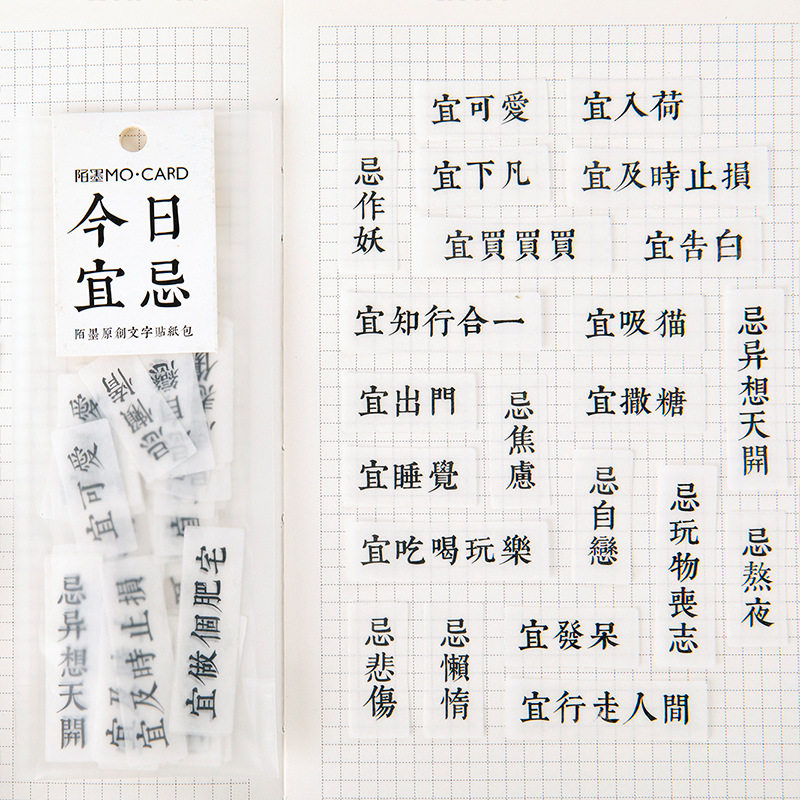 陌墨MO·CARD
今日
宜忌
陌墨原創文字貼紙包
懶惰
忌
宜可愛
忌异想天開
宜及時止損
宜做個肥宅
宜可愛
宜入荷
忌作妖
宜下凡
宜及時止損
宜買買買
宜告白
宜知行合一
宜吸猫
忌异想天開
宜出門
忌焦慮
宜撒糖
宜睡覺
忌自戀
忌玩物喪志
忌熬夜
宜吃喝玩樂
忌悲傷
忌懶惰
宜發呆
宜行走人間